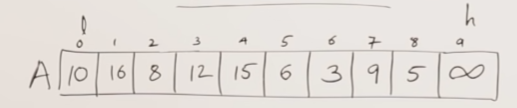 l h
0 1 2 3 4 5 6 7 8 9
A 10 16 8 12 15 6 3 9 5 ∞